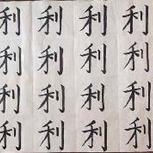 利利利利
利利利利
利利利利
利利利利